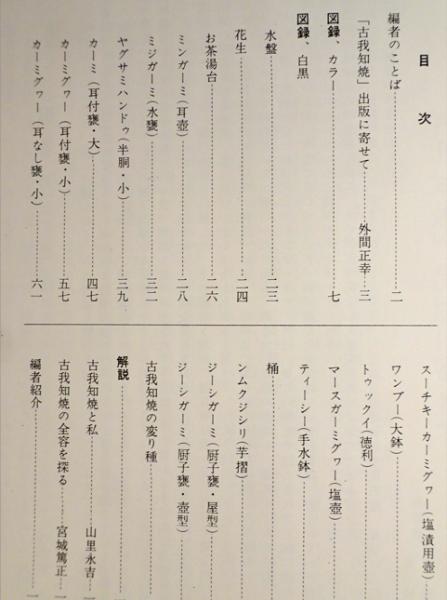 目次
編者のことば……二
「古我知焼」出版に寄せて……外間正幸…三
図録、カラー……七
図録、白黒
水盤……二三
花生……二四
お茶湯台……二六
ミンガーミ(耳壺)……二八
ミジガーミ(水甕)……三二
ヤグサミハンドゥ(半胴・小)……三九
カーミ(耳付甕・大)……四七
カーミグヮー(耳付甕・小)……五七
カーミグヮー(耳なし甕・小)……六一
スーチキーカーミグヮー(塩漬用壺)
ワンブー(大鉢)
トゥックイ(徳利)
マースガーミグヮー(塩壺)
ティーシー(手水鉢)
桶
ンムクジシリ(芋摺)
ジーシガーミ(厨子甕・屋型)
ジーシガーミ(厨子甕・壺型)
古我知焼の変り種
解説
古我知焼と私……山里永吉
古我知焼の全容を探る……宮城篤正
編者紹介